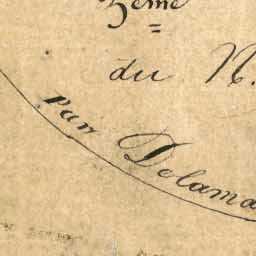 5ème
du N.
par Delama